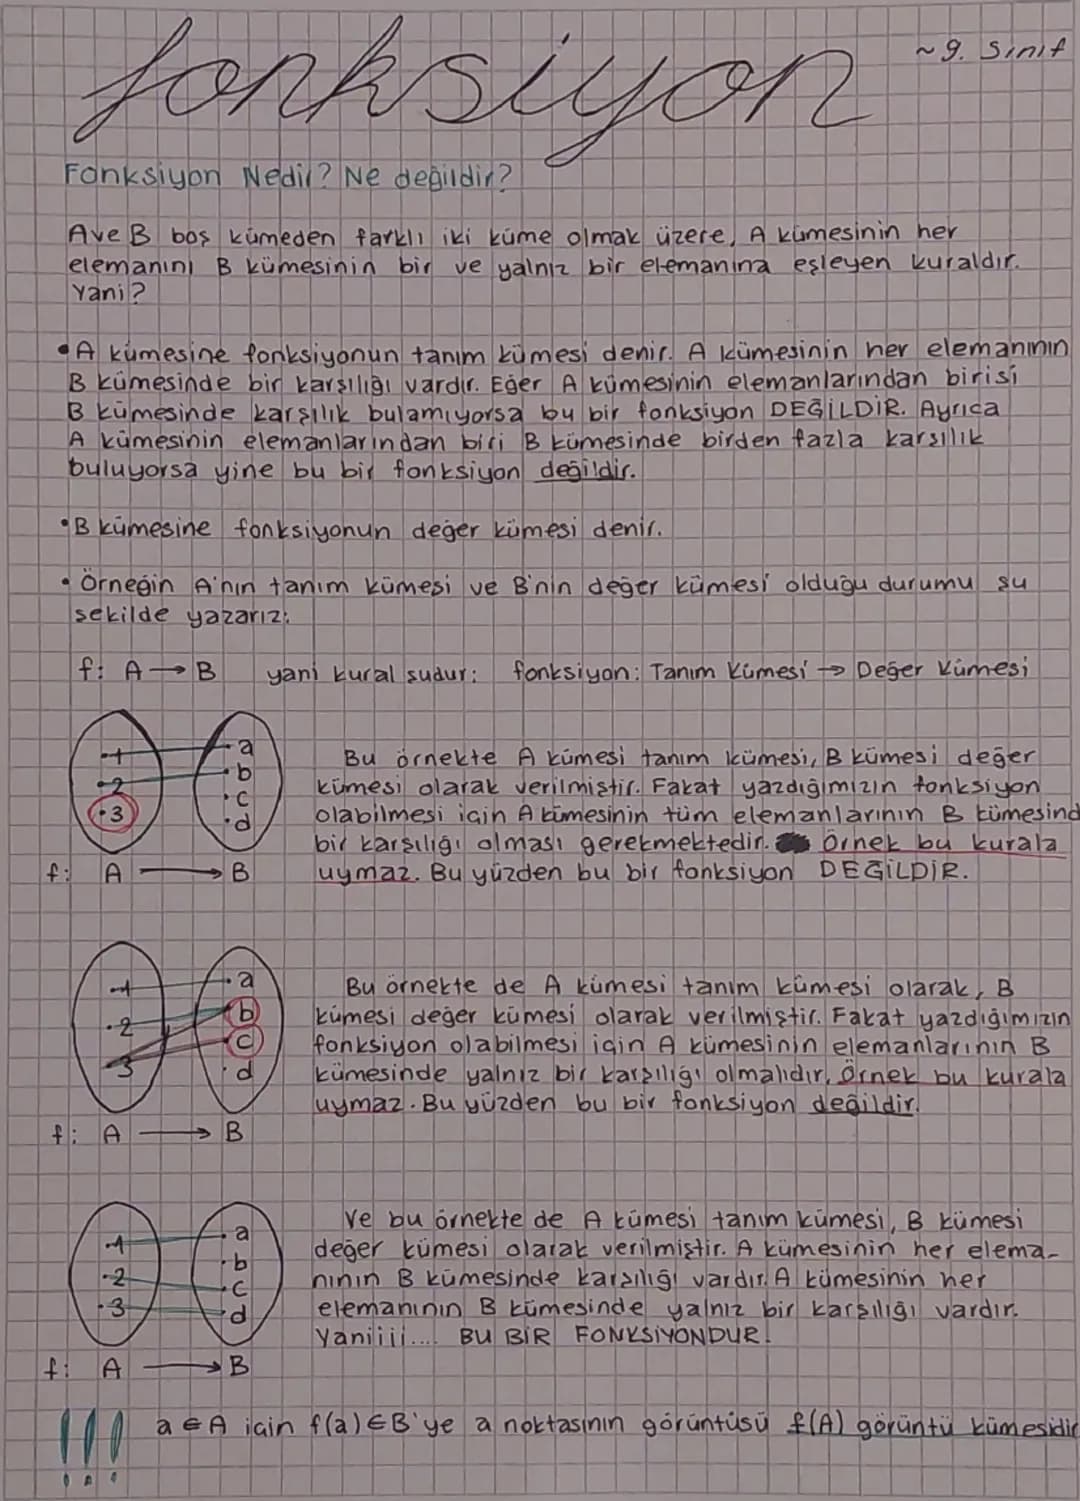 fonksiyon
~9. Sınıf
Fonksiyon Nedir? Ne değildir?
A ve B boş kümeden farklı iki küme olmak üzere, A kümesinin her
elemanını B kümesinin bir ve yalnız bir elemanına eşleyen kuraldır.
Yani?
• A kümesine fonksiyonun tanım kümesi denir. A kümesinin her elemanının
B kümesinde bir karşılığı vardır. Eğer A kümesinin elemanlarından birisi
B kümesinde karşılık bulamıyorsa bu bir fonksiyon DEĞİLDİR. Ayrıca
A kümesinin elemanlarından biri B kümesinde birden fazla karşılık
buluyorsa yine bu bir fonksiyon değildir.
• B kümesine fonksiyonun değer kümesi denir.
• Örneğin A'nın tanım kümesi ve B'nin değer kümesi olduğu durumu şu
şekilde yazarız:
f: A → B yani kural şudur: fonksiyon: Tanım Kümesi → Değer Kümesi
1 a
2 b
3 c
d
f: A → B
Bu örnekte A kümesi tanım kümesi, B kümesi değer
kümesi olarak verilmiştir. Fakat yazdığımızın fonksiyon
olabilmesi için A kümesinin tüm elemanlarının B kümesind
bir karşılığı olması gerekmektedir. Örnek bu kurala
uymaz. Bu yüzden bu bir fonksiyon DEĞİLDİR.
1 a
2 b
3 c
d
f: A → B
Bu örnekte de A kümesi tanım kümesi olarak, B
kümesi değer kümesi olarak verilmiştir. Fakat yazdığımızın
fonksiyon olabilmesi için A kümesinin elemanlarının B
kümesinde yalnız bir karşılığı olmalıdır, Örnek bu kurala
uymaz. Bu yüzden bu bir fonksiyon değildir.
1 a
2 b
3 c
d
f: A → B
Ve bu örnekte de A kümesi tanım kümesi, B kümesi
değer kümesi olarak verilmiştir. A kümesinin her elema-
nının B kümesinde karşılığı vardır. A kümesinin her
elemanının B kümesinde yalnız bir karşılığı vardır.
Yaniiii.... BU BİR FONKSİYONDUR!
!!! a ∈ A için f(a) ∈ B'ye a noktasının görüntüsü f(A) görüntü kümesidir